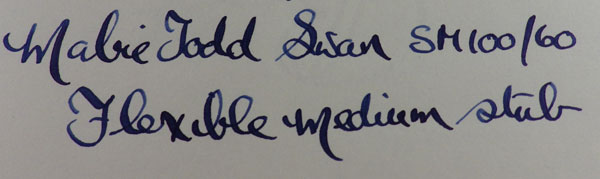 Mabie Todd Swan SM100/60
Flexible medium stub